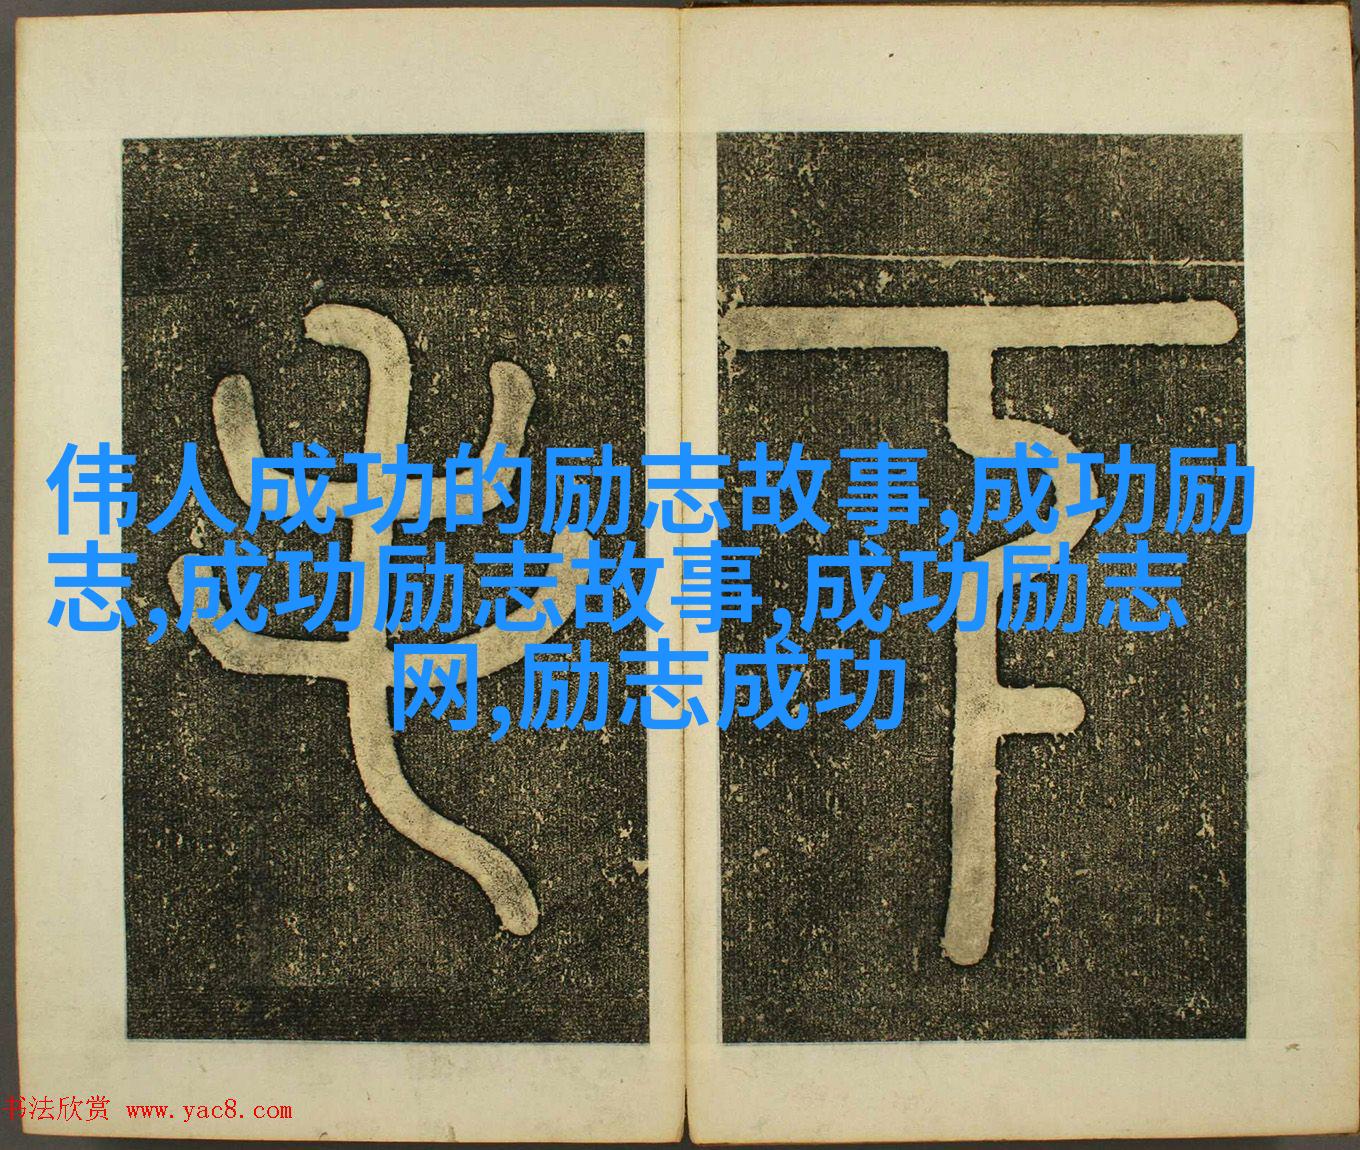 伟人成功的励志故事,成功励
志,成功励志故事,成功励志
网,励志成功
书法欣赏 www.yac8.com